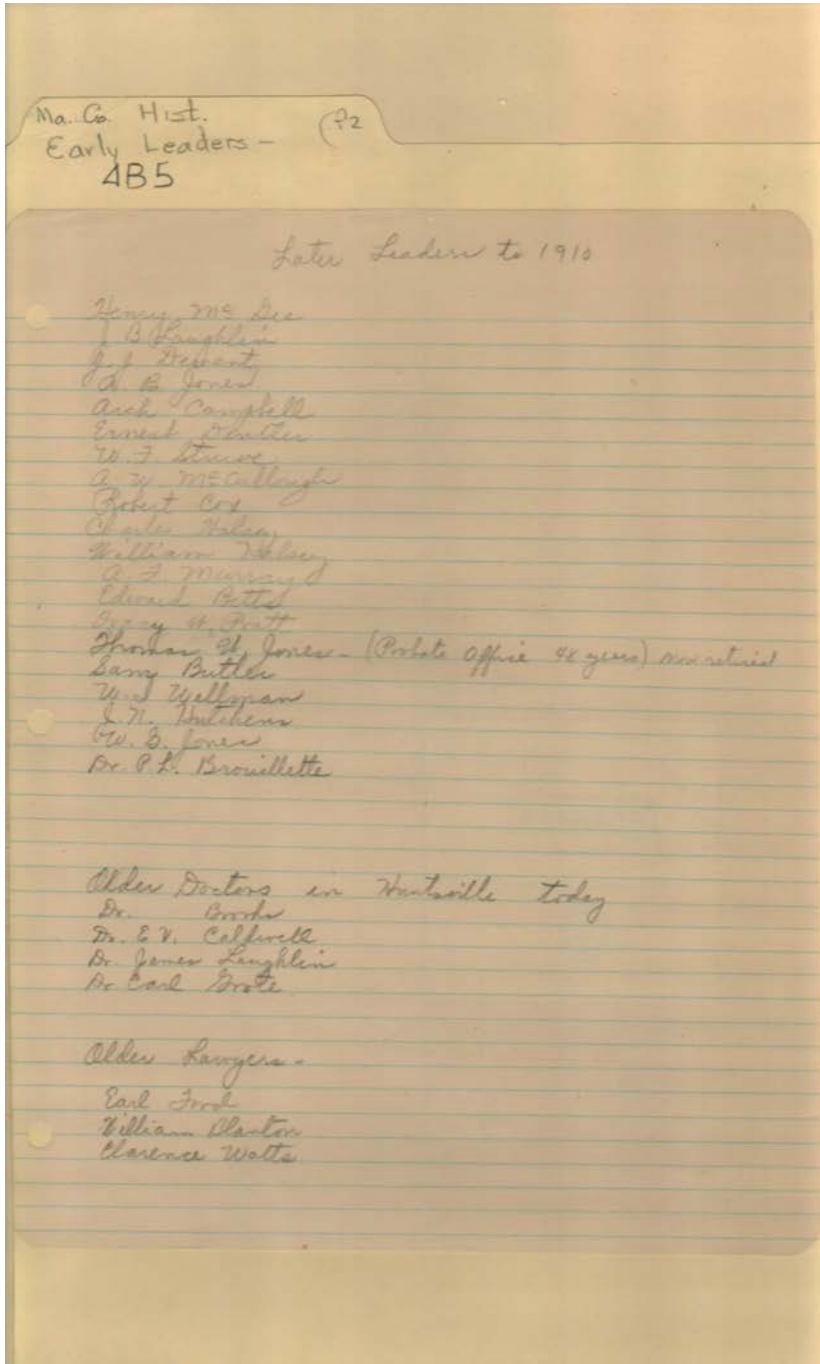 Ma. Co. Hist.
(P2
Early Leaders -
4B5
Later Leaders to 1910
Henry Mc Gee
J B Laughlin
J. J. Dement
A B Jones
Arch Campbell
Ernest Dentler
W. F. Struve
A. W McCullough
Robert Cox
Charles Halsey
William Halsey
A. F Murray
Edward Betts
Tracy W. Pratt
Thomas W. Jones - (Probate Office 48 years) now retired
Samy Butler
W. I Wellman
I. N. Hutchens
W. B. Jones
Dr. P. L. Brouillette
Older Doctors in Huntsville today
Dr. Brooks
Dr. E V. Caldwell
Dr. James Laughlin
Dr Carl Grote
Older Lawyers -
Earl Ford
William Blanton
Clarence Watts